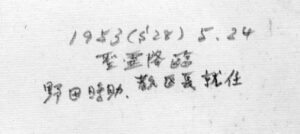 1953(S28) 5.24
聖霊降臨
野田時助、教区長就任